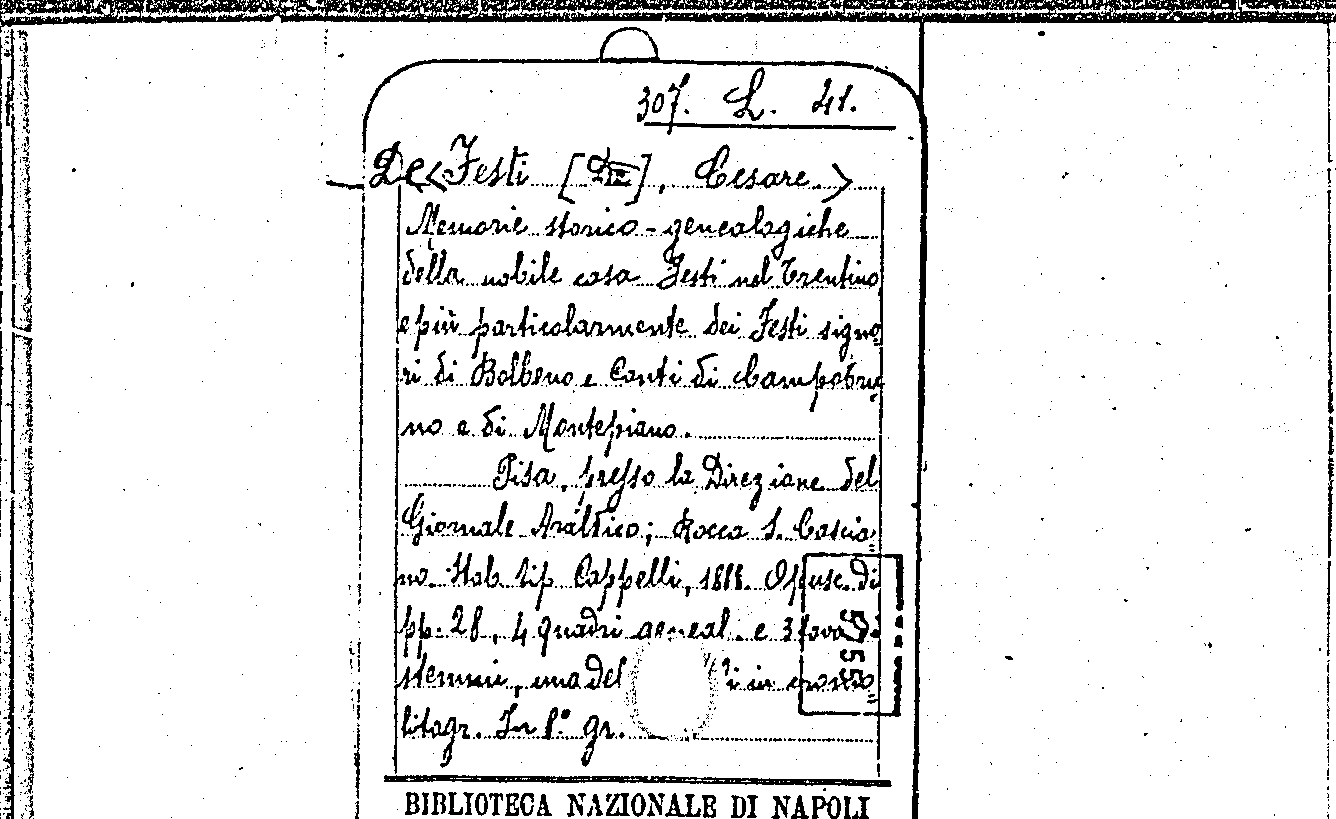 307. L. 41.
De <Festi [De], Cesare.>
Memorie storico-genealogiche
della nobile casa Festi nel Trentino
e più particolarmente dei Festi signo
ri di Bolbeno e Conti di Campobru
no e di Montepiano.
Pisa, presso la Direzione del
Giornale Araldico; Rocca S. Cascia
no. Stab. tip. Cappelli, 1888. Opusc. di
pp. 28, 4 quadri geneal. e 3 tavo di
stemmi, una del in cromo
litogr. In 8° gr.
555
BIBLIOTECA NAZIONALE DI NAPOLI